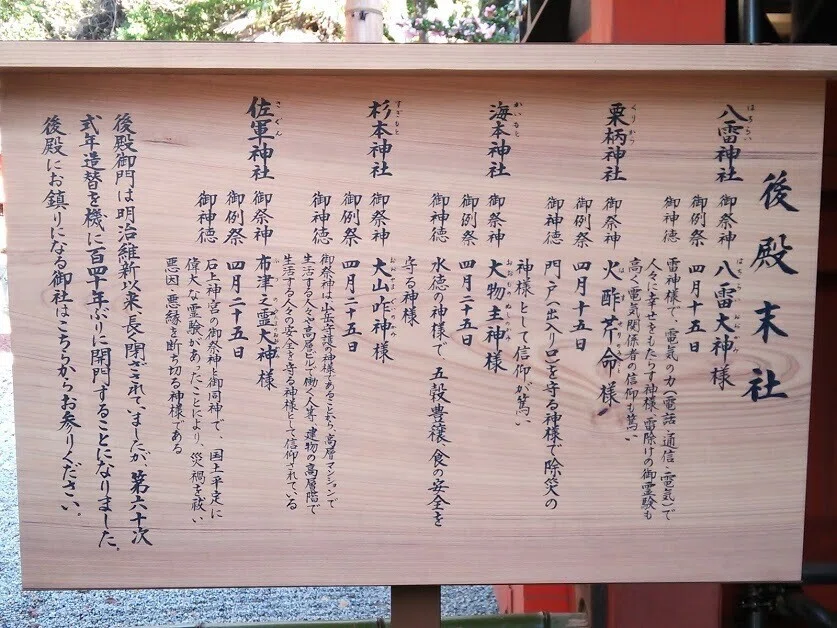 後殿末社
八雷神社
はちらい
御祭神 八雷大神様
御例祭 四月十五日
御神徳 雷神様で、電気の力(電話・通信・電気)で
人々に幸せをもたらす神様 雷除けの御霊験も
高く電気関係者の信仰も篤い
栗柄神社
くりから
御祭神 火酢芹命様
御例祭 四月十五日
御神徳 門、戸(出入り口)を守る神様で除災の
神様として信仰が篤い
海本神社
かいもと
御祭神 大物主神様
おおものぬしのかみ
御例祭 四月二十五日
御神徳 水徳の神様で、五穀豊穣、食の安全を
守る神様
杉本神社
すぎもと
御祭神 大山咋神様
おおやまくいのかみ
御例祭 四月二十五日
御神徳 御祭神は山岳守護の神様であることから、高層マンションで
生活する人々や高層ビルで働く人等、建物の高層階で
生活する人々の安全を守る神様として信仰されている
佐軍神社
さぐん
御祭神 布津之霊大神様
御例祭 四月二十五日
御神徳 石上神宮の御祭神と御同神で、国土平定に
偉大な霊験があったことにより、災禍を祓い
悪因・悪縁を断ち切る神様である
後殿御門は明治維新以来、長く閉ざされていましたが、第六十次
式年造替を機に百四十年ぶりに開門することになりました。
後殿にお鎮りになる御社はこちらからお参りください。